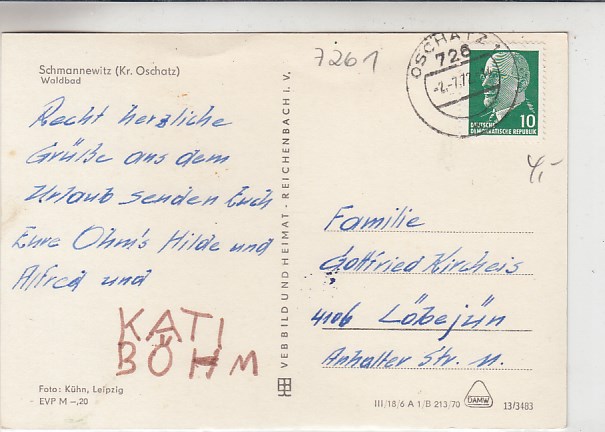 7261
Schmannewitz (Kr. Oschatz)
Waldbad
Recht herzliche
Grüße aus dem
Urlaub senden Euch
Eure Ohm's Hilde und
Alfred und
KATI
BÖHM
Foto: Kühn, Leipzig
EVP M –,20
VEB BILD UND HEIMAT · REICHENBACH i. V.
OSCHATZ 1
726
10
DEUTSCHE
DEMOKRATISCHE REPUBLIK
4,-
Familie
Gottfried Kircheis
4106 Löbejün
Anhalter Str. 11.
III/18/6 A 1/B 213/70
DAMW
13/3483